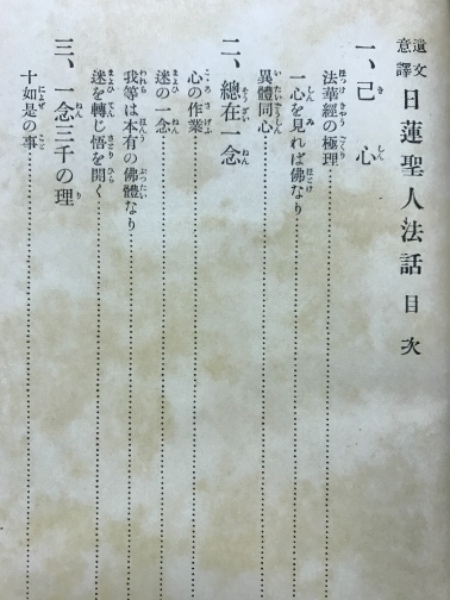 遺文意譯 日蓮聖人法話 目次
一、己心
法華經の極理
一心を見れば佛なり
異體同心
二、總在一念
心の作業
迷の一念
我等は本有の佛體なり
迷を轉じ悟を開く
三、一念三千の理
十如是の事